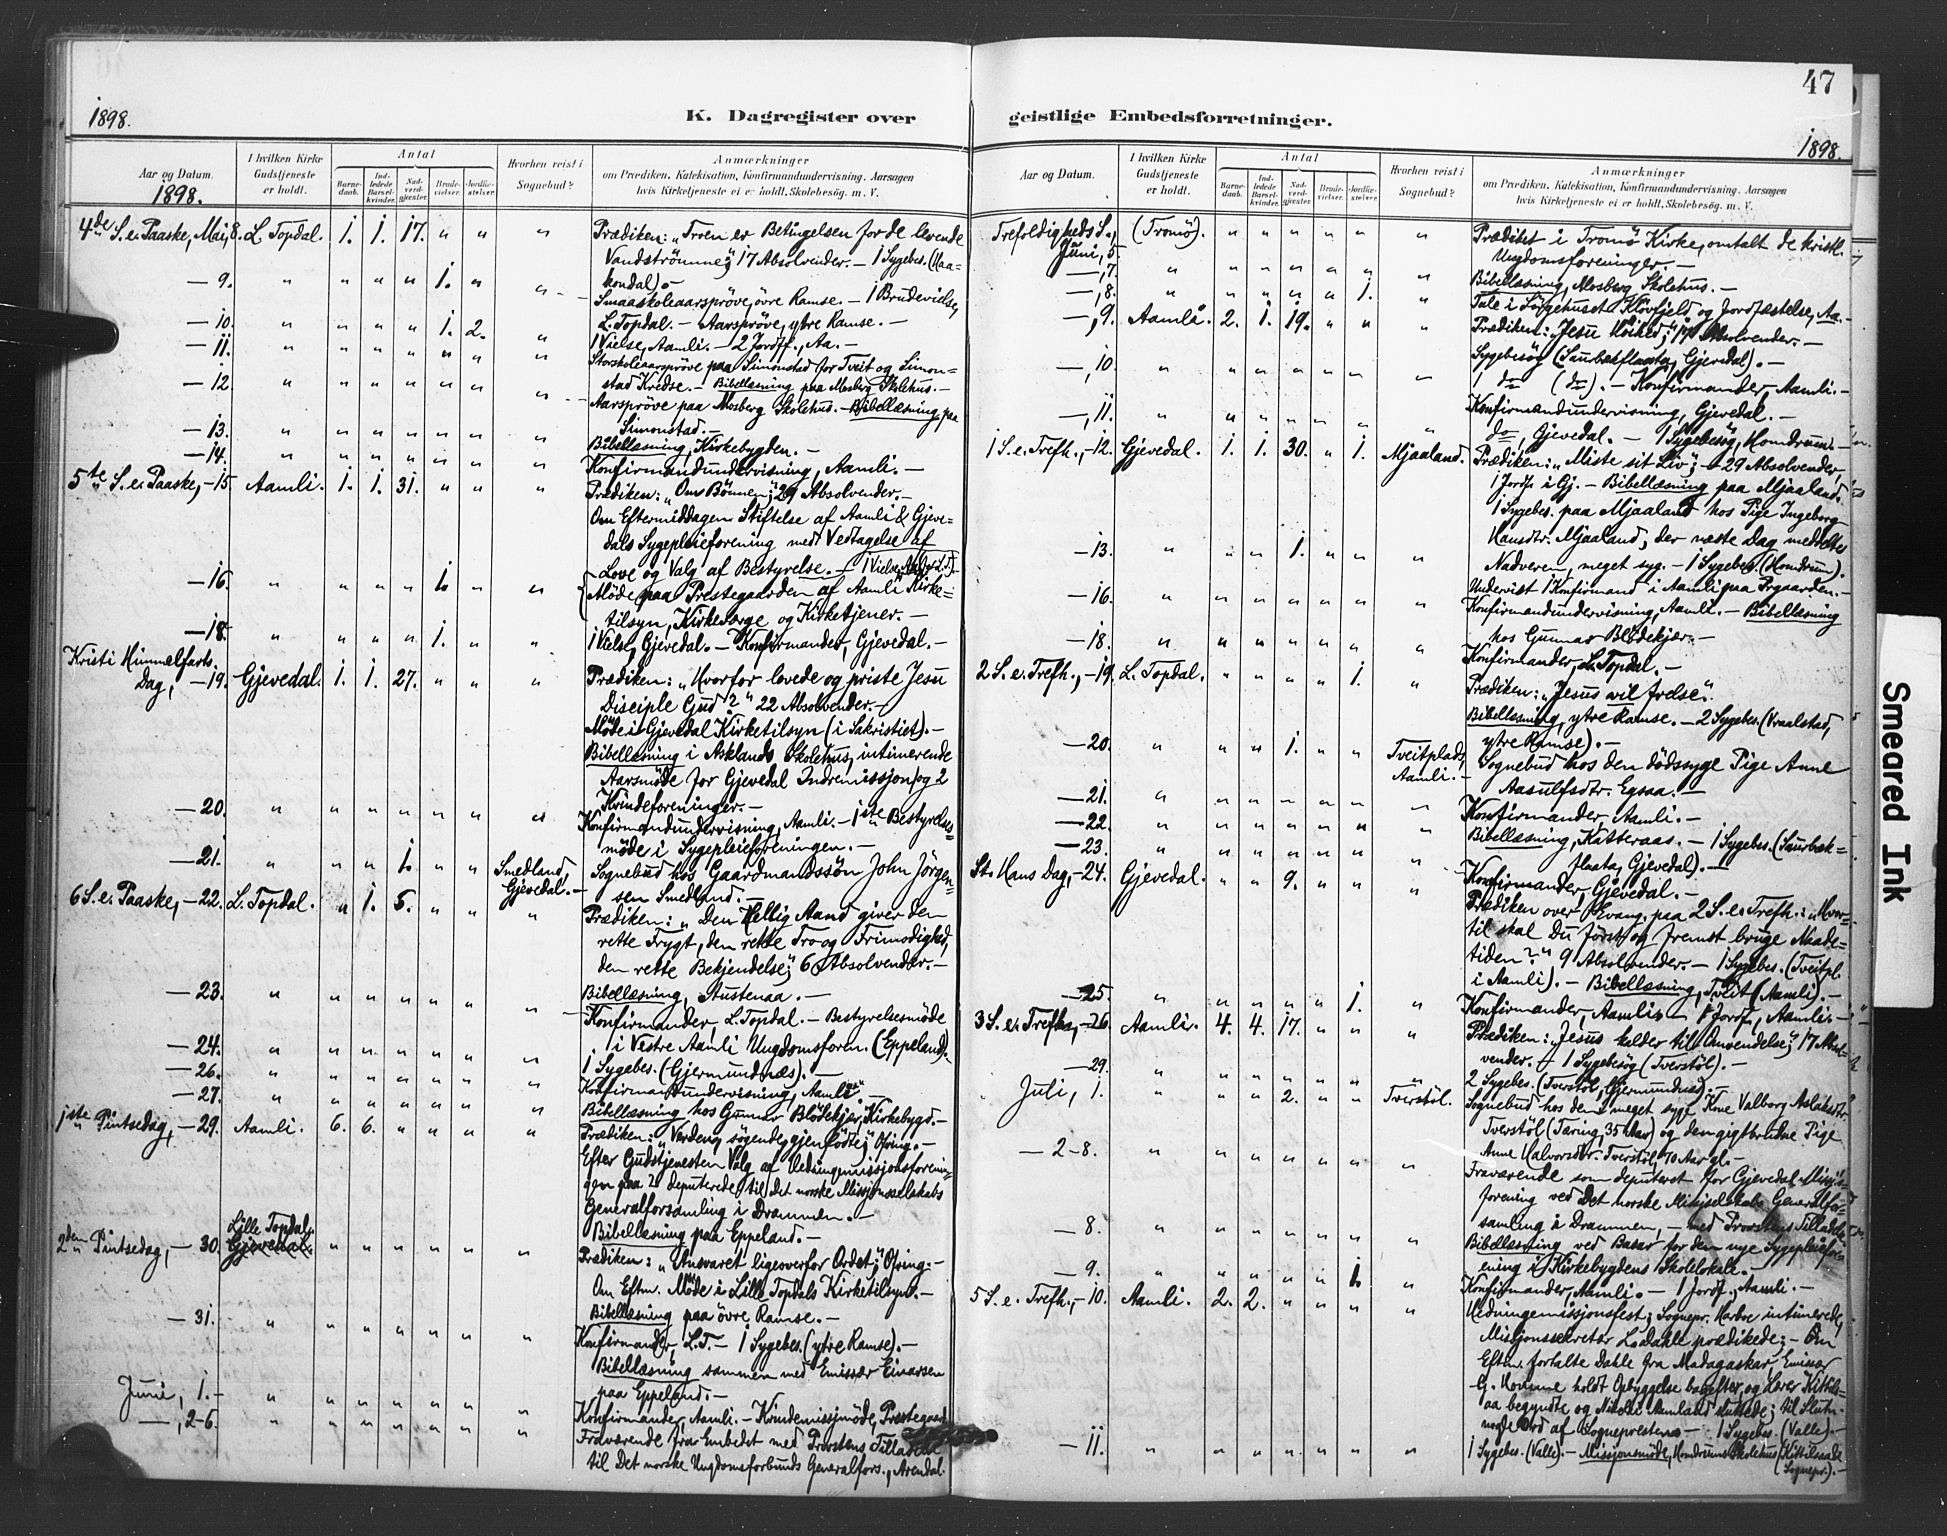 47
1898.
K. Dagregister over geistlige Embedsforretninger.
1898.
Aar og Datum.
1898.
I hvilken Kirke Gudstjeneste er holdt.
Antal
Barnedaab.
Indledede Barselkvinder.
Nadverdgjester.
Brudevielser.
Jordfæstelser.
Hvorhen reist i Sognebud?
Anmærkninger
om Prædiken, Katekisation, Konfirmandundervisning, Aarsagen
hvis Kirketjeneste ei er holdt, Skolebesøg. m. V.
4de S. e. Paaske, Mai, 8. L. Topdal. 1. 1. 17. " " " Prædiken: „Troen er Betingelsen for de levende
Vandströmme;“ 17 Absolvender. – 1 Sygebes. (Haa-
kondal). –
— 9. " " " " 1. " " Smaaskoleaarsprøve, övre Ramse. – 1 Brudevielse,
L. Topdal. – Aarsprøve, ytre Ramse. –
— 10. " " " " 1. 2. " 1 Vielse, Aamli. – 2 Jordf., Aa. –
— 11. " " " " " " " Storskoleaarsprøve paa Simonstad for Tveit og Simon-
stad Kredse. – Bibellæsning paa Mosberg Skolehus. –
— 12. " " " " " " " Aarsprøve paa Mosberg Skolehus. – Bibellæsning paa
Simonstad. –
— 13. " " " " " " " Bibellæsning, Kirkebygden. –
— 14. " " " " " " " Konfirmandundervisning, Aamli. –
5te S. e. Paaske, – 15. Aamli. 1. 1. 31. " " " Prædiken: „Om Bönnen;“ 29 Absolvender. –
Om Eftermiddagen Stiftelse af Aamli & Gjeve-
dals Sygepleieforening med Vedtagelse af
Love og Valg af Bestyrelse. – 1 Vielse
— 16. " " " " 1. " " Möde paa Prestegaarden af Aamli Kirke-
tilsyn, Kirkeværge og Kirketjener. –
— 18. " " " " 1. " " 1 Vielse, Gjevedal. – Konfirmander, Gjevedal. –
Kristi Himmelfarts
Dag, – 19. Gjevedal. 1. 1. 27. " " " Prædiken: „Hvorfor lovede og priste Jesu
Disciple Gud?“ 22 Absolvender. –
Möde i Gjevedal Kirketilsyn (i Sakristiet). –
Bibellæsning i Asklands Skolehus, intimerende
Aarsmöde for Gjevedal Indremissjon og 2
Kvindeforeninger. –
— 20. " " " " " " " Konfirmandundervisning, Aamli. – 1ste Bestyrelses-
möde i Sygepleieforeningen. –
— 21. " " " 1. " " Smedland, Gjevedal. – Sognebud hos Gaardmandssön John Jörgen-
sen Smedland. –
6 S. e. Paaske, – 22. L. Topdal. " 1. 5. " " " Prædiken: „Den Hellig Aand giver den
rette Frygt, den rette Tro og Frimodighed,
den rette Bekjendelse;“ 6 Absolvender. –
— 23. " " " " " " " Bibellæsning, Austenaa. –
Konfirmander, L. Topdal. – Bestyrelsesmöde
i Vestre Aamli Ungdomsforen. (Eppeland). –
— 24. " " " " " " " 1 Sygebes. (Gjermundnæs). –
— 26. " " " " " " " Konfirmandundervisning, Aamli. –
— 27. " " " " " " " Bibellæsning hos Gunnar Blödekjær, Kirkebygd. –
1ste Pintsedag, – 29. Aamli. 6. 6. " " " " Prædiken: „Verden, søgende, gjenfödte;“ Ofring. –
Efter Gudstjenesten Valg af Hedningmissjonsforenin-
gen paa 2 deputerede til Det norske Missjonsselskabs
Generalforsamling i Drammen. –
Bibellæsning paa Eppeland. –
2den Pintsedag, – 30. Lille Topdal. Gjevedal. " " " " " " Prædiken: „Ansvaret ligeoverfor Ordet;“ Ofring. –
Om Eftm. Möde i Lille Topdals Kirketilsyn. –
Bibellæsning paa övre Ramse. –
— 31. " " " " " " " Konfirmander L. T. – 1 Sygebes. (ytre Ramse). –
Bibellæsning sammen med Emissær Einarsen
paa Eppeland. –
Juni, 1. – " " " " " " " Konfirmander, Aamli. – Kvindemissjmöde, Prestegaard
—, 2-6. " " " " " " " Fraværende fra Embedet med Provstens Tilladelse
til Det norske Ungdomsforbunds Generalfors., Arendal.
Aar og Datum.
I hvilken Kirke Gudstjeneste er holdt.
Antal
Barnedaab.
Indledede Barselkvinder.
Nadverdgjester.
Brudevielser.
Jordfæstelser.
Hvorhen reist i Sognebud?
Anmærkninger
om Prædiken, Katekisation, Konfirmandundervisning, Aarsagen
hvis Kirketjeneste ei er holdt, Skolebesøg. m. V.
Trefoldigheds S.,
Juni, 5. (Tromö). " " " " " " Prædiket i Tromö Kirke, omtalt de kristl.
Ungdomsforeninger. –
—, 7. " " " " " " " Bibellæsning, Mosberg Skolehus. –
—, 8. " " " " " 1. " Tale i Sørgehuset Klovfjeld og Jordfæstelse, Aa. –
—, 9. Aamli. 2. 1. 19. " " " Prædiken: „Jesu Höihed;“ Absolvender. –
Sygebesög (Saurbækflaata, Gjevedal). –
—, 10. " " " " " " " 1 do (do). – Konfirmander, Aamli. –
Konfirmandundervisning, Gjevedal. –
—, 11. " " " " " " " do, Gjevedal. – 1 Sygebesög, Homdrum. –
1 S. e. Trefh., – 12. Gjevedal. 1. 1. 30. " 1. Mjaaland. Prædiken: „Miste sit Liv;“ – 29 Absolvender,
1 Jordf. i Gj. – Bibellæsning paa Mjaaland.
1 Sygebes. paa Mjaaland hos Pige Ingeborg
Hansdtr. Mjaaland, der næste Dag meddeltes
— 13. " " " 1. " " " Nadveren, meget syg. – 1 Sygebes. (Homdrum).
Undervist 1 Konfirmand i Aamli paa Prgaarden. –
— 16. " " " " " " " Konfirmandundervisning, Aamli. – Bibellæsning
hos Gunnar Blödekjær. –
— 18. " " " " " " " Konfirmander, L. Topdal. –
2 S. e. Trefh., – 19. L. Topdal. " " " " 1. " Prædiken: „Jesus vil frelse“.
Bibellæsning, ytre Ramse. – 2 Sygebes. (Vraalstad,
ytre Ramse). –
— 20. " " " 1. " " Tveitplads, Aamli. – Sognebud hos den dödssyge Pige Anne
Aasulfsdtr. Egsaa. –
— 21. " " " " " " " Konfirmander, Aamli. –
— 22. " " " " " " " Bibellæsning, Katteraas. – 1 Sygebes. (Saurbæk-
flaata, Gjevedal). –
— 23. " " " " " " " Konfirmander, Gjevedal. –
St. Hans Dag, – 24. Gjevedal. " " 9. " " " Prædiken over Evang. paa 2 S. e. Trefh.: „Hvor-
til skal Du först og fremst bruge Naade-
tiden?“ 9 Absolvender. – 1 Sygebes. (Tveitpl.
i Aamli). – Bibellæsning, Tveit (Aamli). –
— 25. " " " " " 1. " Konfirmander, Aamli. – 1 Jordf., Aamli. –
3 S. e. Trefh., – 26. Aamli. 4. 4. 17. " " " Prædiken: „Jesus kalder til Omvendelse;“ 17 Absol-
vender. – 1 Sygebesög (Tverstöl). –
— 29. " " " " " " " 2 Sygebes. (Tverstöl, Gjermundnæs). –
Juli, 1. " " " 2. " " Tverstöl. Sognebud hos den meget syge Kone Valborg Aslaksdtr.
Tverstöl (Tæring, 35 Aar) og den gigtbrudne Pige
Anne Halvorsdtr. Tverstöl, 70 Aar gl. –
— 2-8. " " " " " " " Fraværende som deputeret for Gjevedal Missjs-
forening ved Det norske Missjselskabs Generalfor-
samling i Drammen, – med Provstens Tilladelse
— 8. " " " " " " " Bibellæsning ved Basar for den nye Sygepleiefor-
ening i Kirkebygdens Skolelokale. –
— 9. " " " " " 1. " Konfirmander, Aamli. – 1 Jordf., Aamli. –
5 S. e. Trefh., – 10. Aamli. 2. 2. " " " " Hedningemissjonsfest; Sognepr. Harboe intimerede,
Missjonssekretær L. Dahle prædikede; – Om
Eftm. fortalte Dahle fra Madagaskar, Emissær
G. Homme holdt Opbyggelse bagefter, og Lærer Kittils-
aa begyndte og Nikolai Aamland sluttede; til Slutn.
nogle Ord af Sognepresten. – 1 Sygebes. (Valle). –
— 11. " " " " " " " 1 Sygebes. (Valle). – Missjonsmöde, Homdrum Skolehus (Kittilsaa,
Sognepr.). –
Smeared Ink